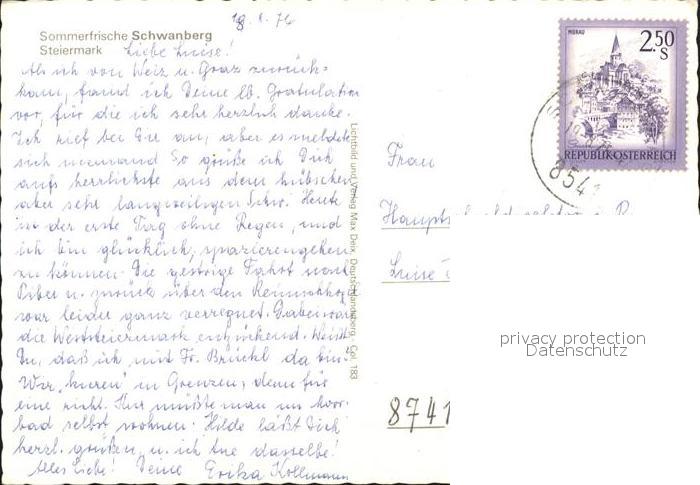 18.8.76
Sommerfrische Schwanberg
Steiermark
Liebe Luise!
Als ich von Weiz u. Graz zurück=
kam, fand ich Deine lb. Gratulation
vor, für die ich sehr herzlich danke.
Ich rief bei Dir an, aber es meldete
sich niemand. So grüße ich Dich
aufs herzlichste aus dem hübschen
aber sehr langweiligen Schw. Heute
ist der erste Tag ohne Regen, und
ich bin glücklich, spazierengehen
zu können. Die gestrige Fahrt nach
u. zurück über den
war leider ganz verregnet. Dabei wäre
die Weststeiermark entzückend. Weißt
Du, daß ich mit Fr. Brückl da bin.
Wir "kuren" in Grenzen, denn für
eine richt. Kur müßte man im Moor=
bad selbst wohnen. Hilde läßt Dich
herzl. grüßen, u. ich tue dasselbe!
Alles Liebe! Deine Erika Kollmann
Lichtbild und Verlag Max Deix, Deutschlandsberg - Col. 183
MURAU
2.50
S
REPUBLIK ÖSTERREICH
8541
Frau
Luise
8741
privacy protection
Datenschutz